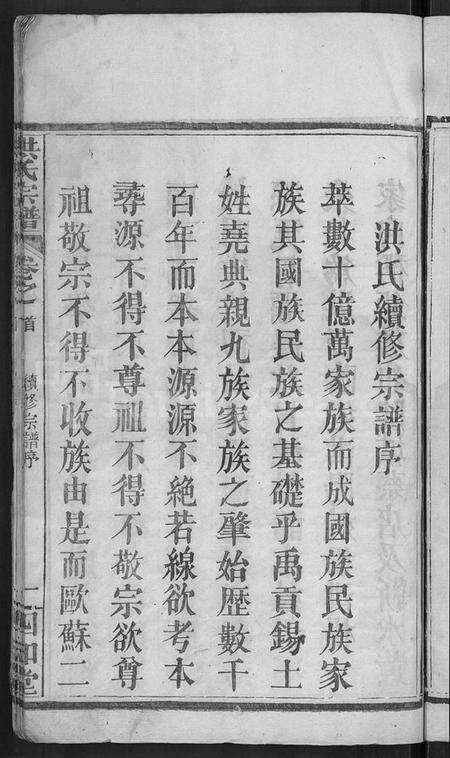 洪氏續修宗譜序
萃數十億萬家族而成國族民族家
族其國族民族之基礎乎禹貢錫土
姓堯典親九族家族之肇始歷數千
百年而本本源源不絕若線欲考本
尋源不得不尊祖不得不敬宗欲尊
祖敬宗不得不收族由是而歐蘇二
洪氏宗譜
卷之首
續修宗譜序